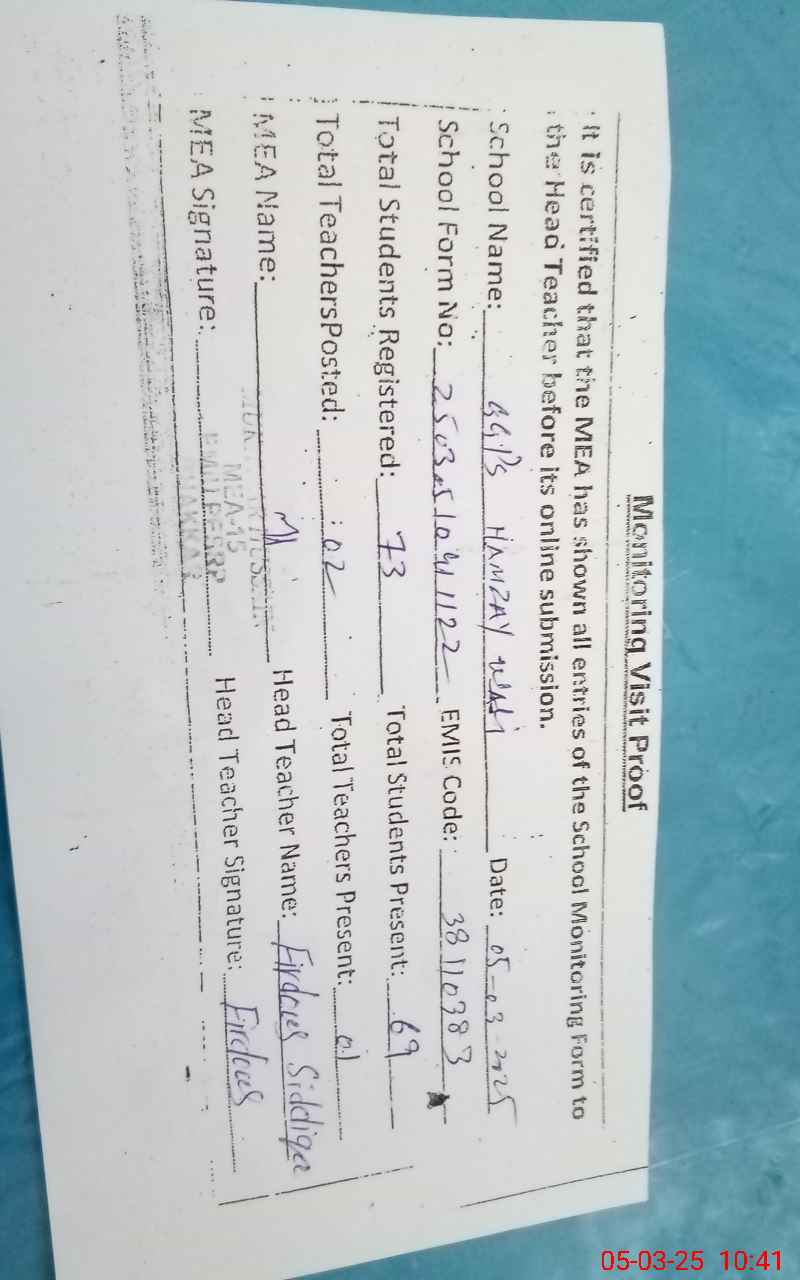 Monitoring Visit Proof
It is certified that the MEA has shown all entries of the School Monitoring Form to
the Head Teacher before its online submission.
School Name: GGPS HAMZAY Date: 05-03-2025
School Form No: EMIS Code: 38110383
Total Students Registered: 73 Total Students Present: 69
Total TeachersPosted: 02 Total Teachers Present: 01
MEA Name: Head Teacher Name: Firdous Siddiqa
MEA-15
MEA Signature: Head Teacher Signature: Firdous
05-03-25 10:41